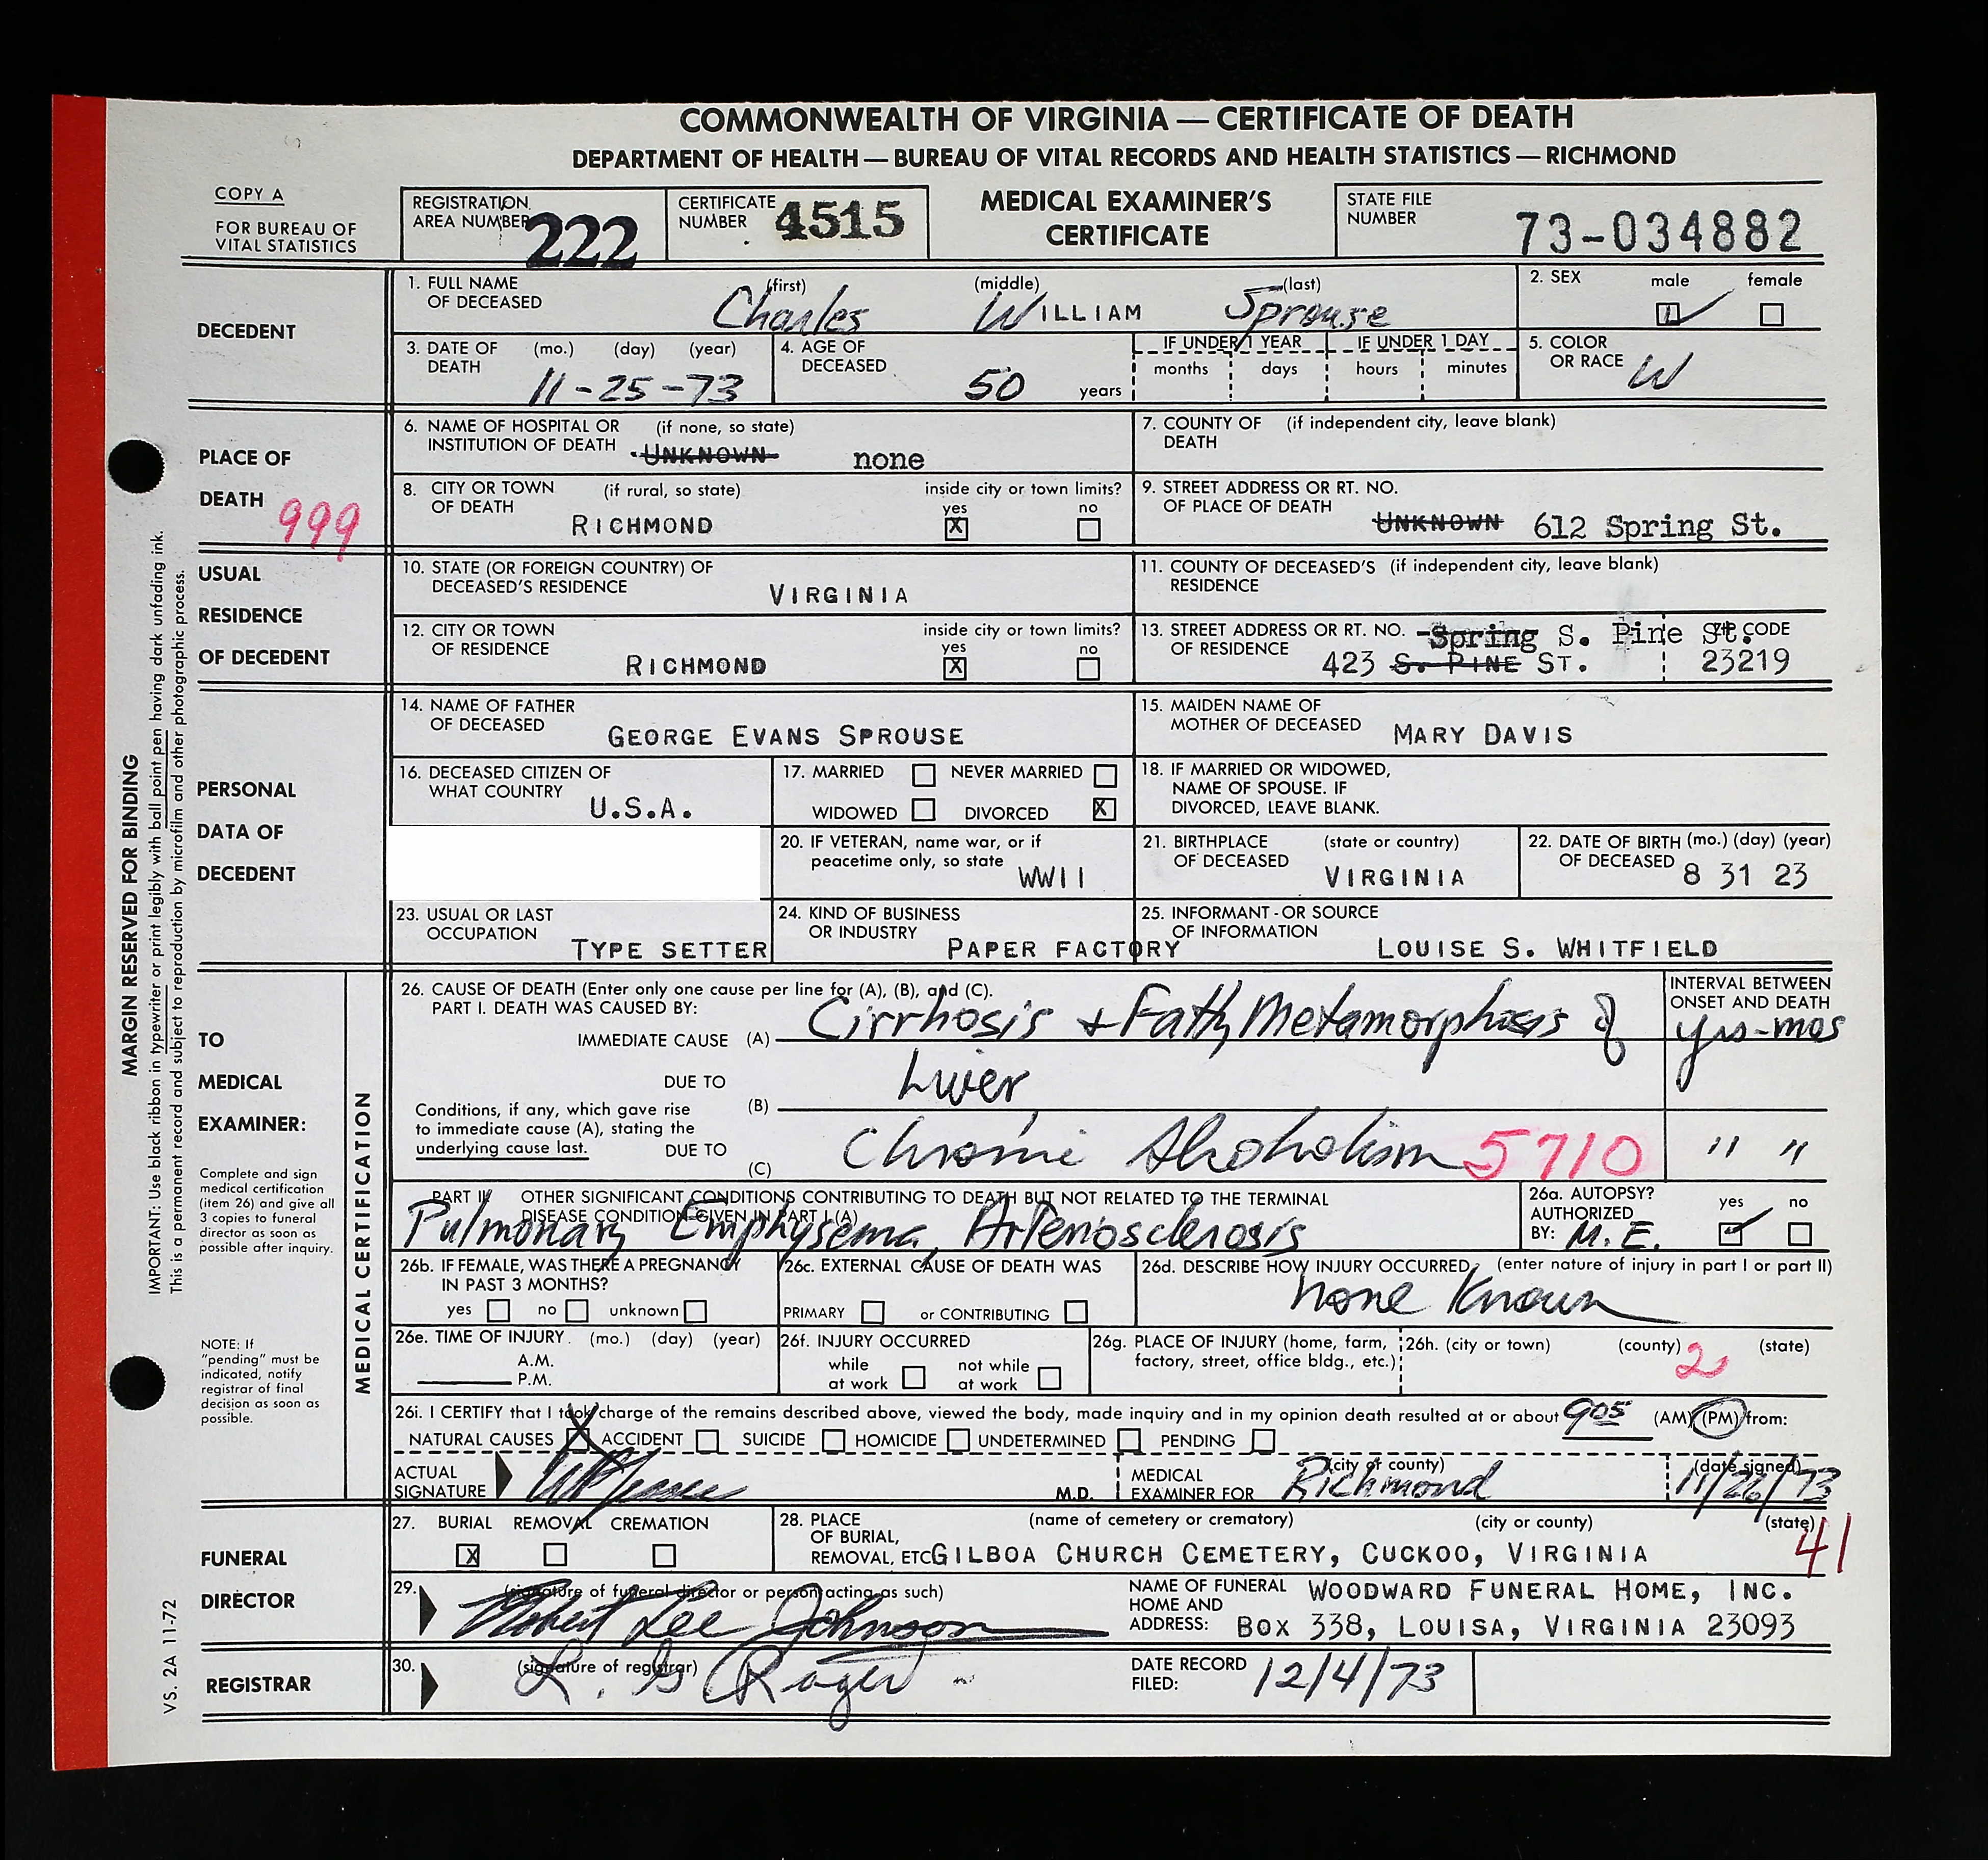 COMMONWEALTH OF VIRGINIA — CERTIFICATE OF DEATH
DEPARTMENT OF HEALTH — BUREAU OF VITAL RECORDS AND HEALTH STATISTICS — RICHMOND
COPY A
FOR BUREAU OF
VITAL STATISTICS
REGISTRATION
AREA NUMBER 222
CERTIFICATE
NUMBER 4515
MEDICAL EXAMINER'S
CERTIFICATE
STATE FILE
NUMBER 73-034882
DECEDENT
1. FULL NAME OF DECEASED (first) (middle) (last)
Charles WILLIAM Sprouse
2. SEX male female
3. DATE OF DEATH (mo.) (day) (year)
11-25-73
4. AGE OF DECEASED 50 years
IF UNDER 1 YEAR IF UNDER 1 DAY
months days hours minutes
5. COLOR OR RACE W
PLACE OF
DEATH 999
6. NAME OF HOSPITAL OR (if none, so state)
INSTITUTION OF DEATH UNKNOWN none
7. COUNTY OF (if independent city, leave blank)
DEATH
8. CITY OR TOWN (if rural, so state) inside city or town limits?
OF DEATH RICHMOND yes X no
9. STREET ADDRESS OR RT. NO.
OF PLACE OF DEATH UNKNOWN 612 Spring St.
USUAL
RESIDENCE
OF DECEDENT
10. STATE (OR FOREIGN COUNTRY) OF
DECEASED'S RESIDENCE VIRGINIA
11. COUNTY OF DECEASED'S (if independent city, leave blank)
RESIDENCE
12. CITY OR TOWN inside city or town limits?
OF RESIDENCE RICHMOND yes X no
13. STREET ADDRESS OR RT. NO. Spring S. Pine St. ZIP CODE
OF RESIDENCE 423 S. PINE ST. 23219
PERSONAL
DATA OF
DECEDENT
14. NAME OF FATHER
OF DECEASED GEORGE EVANS SPROUSE
15. MAIDEN NAME OF
MOTHER OF DECEASED MARY DAVIS
16. DECEASED CITIZEN OF
WHAT COUNTRY U.S.A.
17. MARRIED NEVER MARRIED
WIDOWED DIVORCED X
18. IF MARRIED OR WIDOWED,
NAME OF SPOUSE. IF
DIVORCED, LEAVE BLANK.
20. IF VETERAN, name war, or if
peacetime only, so state WWII
21. BIRTHPLACE (state or country)
OF DECEASED VIRGINIA
22. DATE OF BIRTH (mo.) (day) (year)
OF DECEASED 8 31 23
23. USUAL OR LAST
OCCUPATION TYPE SETTER
24. KIND OF BUSINESS
OR INDUSTRY PAPER FACTORY
25. INFORMANT - OR SOURCE
OF INFORMATION LOUISE S. WHITFIELD
TO
MEDICAL
EXAMINER:
Complete and sign
medical certification
(item 26) and give all
3 copies to funeral
director as soon as
possible after inquiry.
NOTE: If
"pending" must be
indicated, notify
registrar of final
decision as soon as
possible.
MEDICAL CERTIFICATION
26. CAUSE OF DEATH (Enter only one cause per line for (A), (B), and (C).
PART I. DEATH WAS CAUSED BY:
INTERVAL BETWEEN
ONSET AND DEATH
IMMEDIATE CAUSE (A) Cirrhosis + Fatty Metamorphosis of yrs-mos
DUE TO Liver
Conditions, if any, which gave rise (B)
to immediate cause (A), stating the
underlying cause last. DUE TO (C)
Chronic Alcoholism 5710 " "
PART II. OTHER SIGNIFICANT CONDITIONS CONTRIBUTING TO DEATH BUT NOT RELATED TO THE TERMINAL
DISEASE CONDITION GIVEN IN PART I (A)
Pulmonary Emphysema, Arteriosclerosis
26a. AUTOPSY? yes no
AUTHORIZED
BY: M.E.
26b. IF FEMALE, WAS THERE A PREGNANCY
IN PAST 3 MONTHS?
yes no unknown
26c. EXTERNAL CAUSE OF DEATH WAS
PRIMARY or CONTRIBUTING
26d. DESCRIBE HOW INJURY OCCURRED (enter nature of injury in part I or part II)
none Known
26e. TIME OF INJURY. (mo.) (day) (year)
A.M.
P.M.
26f. INJURY OCCURRED
while not while
at work at work
26g. PLACE OF INJURY (home, farm,
factory, street, office bldg., etc.)
26h. (city or town) (county) 2 (state)
26i. I CERTIFY that I took charge of the remains described above, viewed the body, made inquiry and in my opinion death resulted at or about 905 (AM) (PM) from:
NATURAL CAUSES X ACCIDENT SUICIDE HOMICIDE UNDETERMINED PENDING
ACTUAL
SIGNATURE M.D.
MEDICAL (city or county) (date signed)
EXAMINER FOR Richmond 11/26/73
FUNERAL
DIRECTOR
27. BURIAL REMOVAL CREMATION
X
28. PLACE (name of cemetery or crematory) (city or county) (state)
OF BURIAL,
REMOVAL, ETC. GILBOA CHURCH CEMETERY, CUCKOO, VIRGINIA 41
29. (signature of funeral director or person acting as such)
Robert Lee Johnson
NAME OF FUNERAL WOODWARD FUNERAL HOME, INC.
HOME AND
ADDRESS: BOX 338, LOUISA, VIRGINIA 23093
REGISTRAR
30. (signature of registrar)
L. G
DATE RECORD
FILED: 12/4/73
MARGIN RESERVED FOR BINDING
IMPORTANT: Use black ribbon in typewriter or print legibly with ball point pen having dark unfading ink.
This is a permanent record and subject to reproduction by microfilm and other photographic process.
VS. 2A 11-72